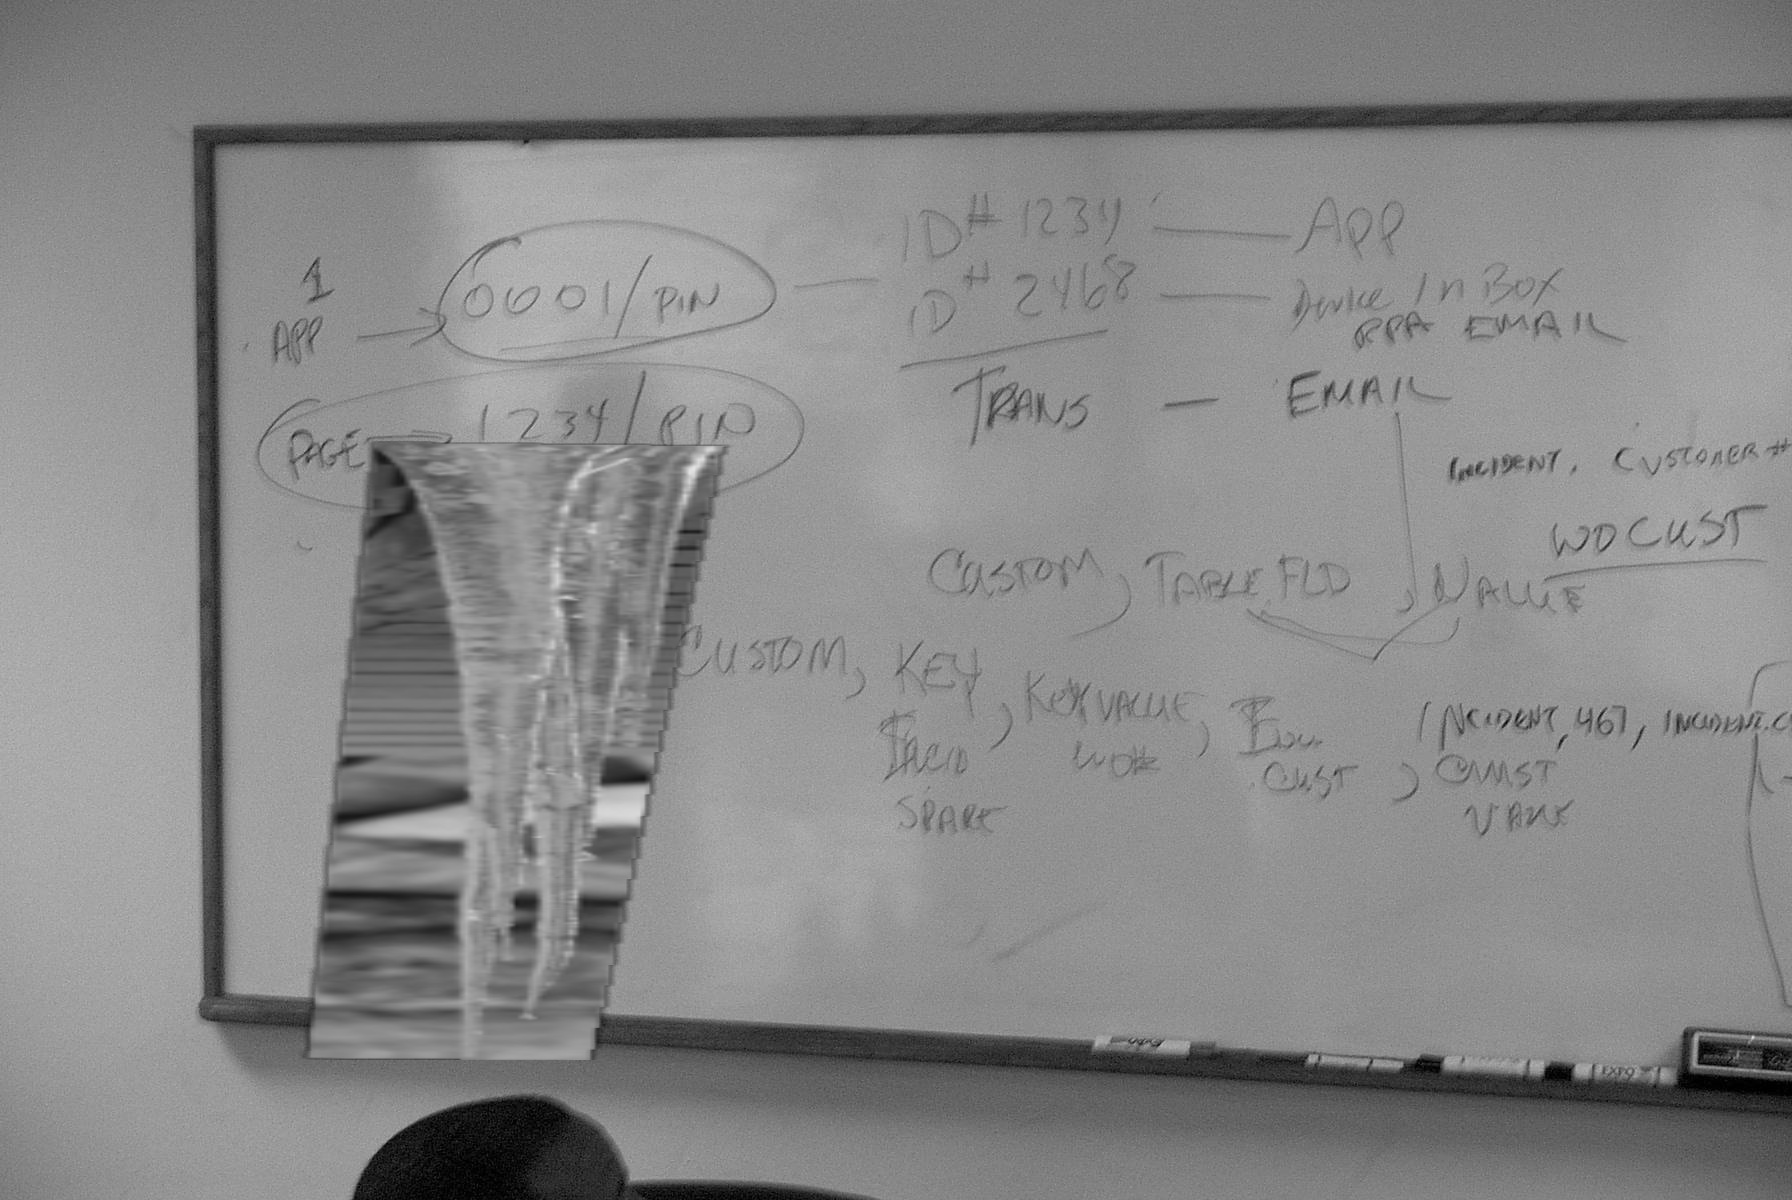 1
APP → 0001/PIN — ID# 1234 — APP
ID# 2468 — Device In Box
EMAIL
PAGE → 1234/PIN
TRANS — EMAIL
INCIDENT, CUSTOMER #
WO CUST
CUSTOM, TABLE FLD, VALUE
CUSTOM, KEY, KEY VALUE,
INCIDENT, 467, INCIDENT.C
WO#
CUST,
SPARE
EXPO